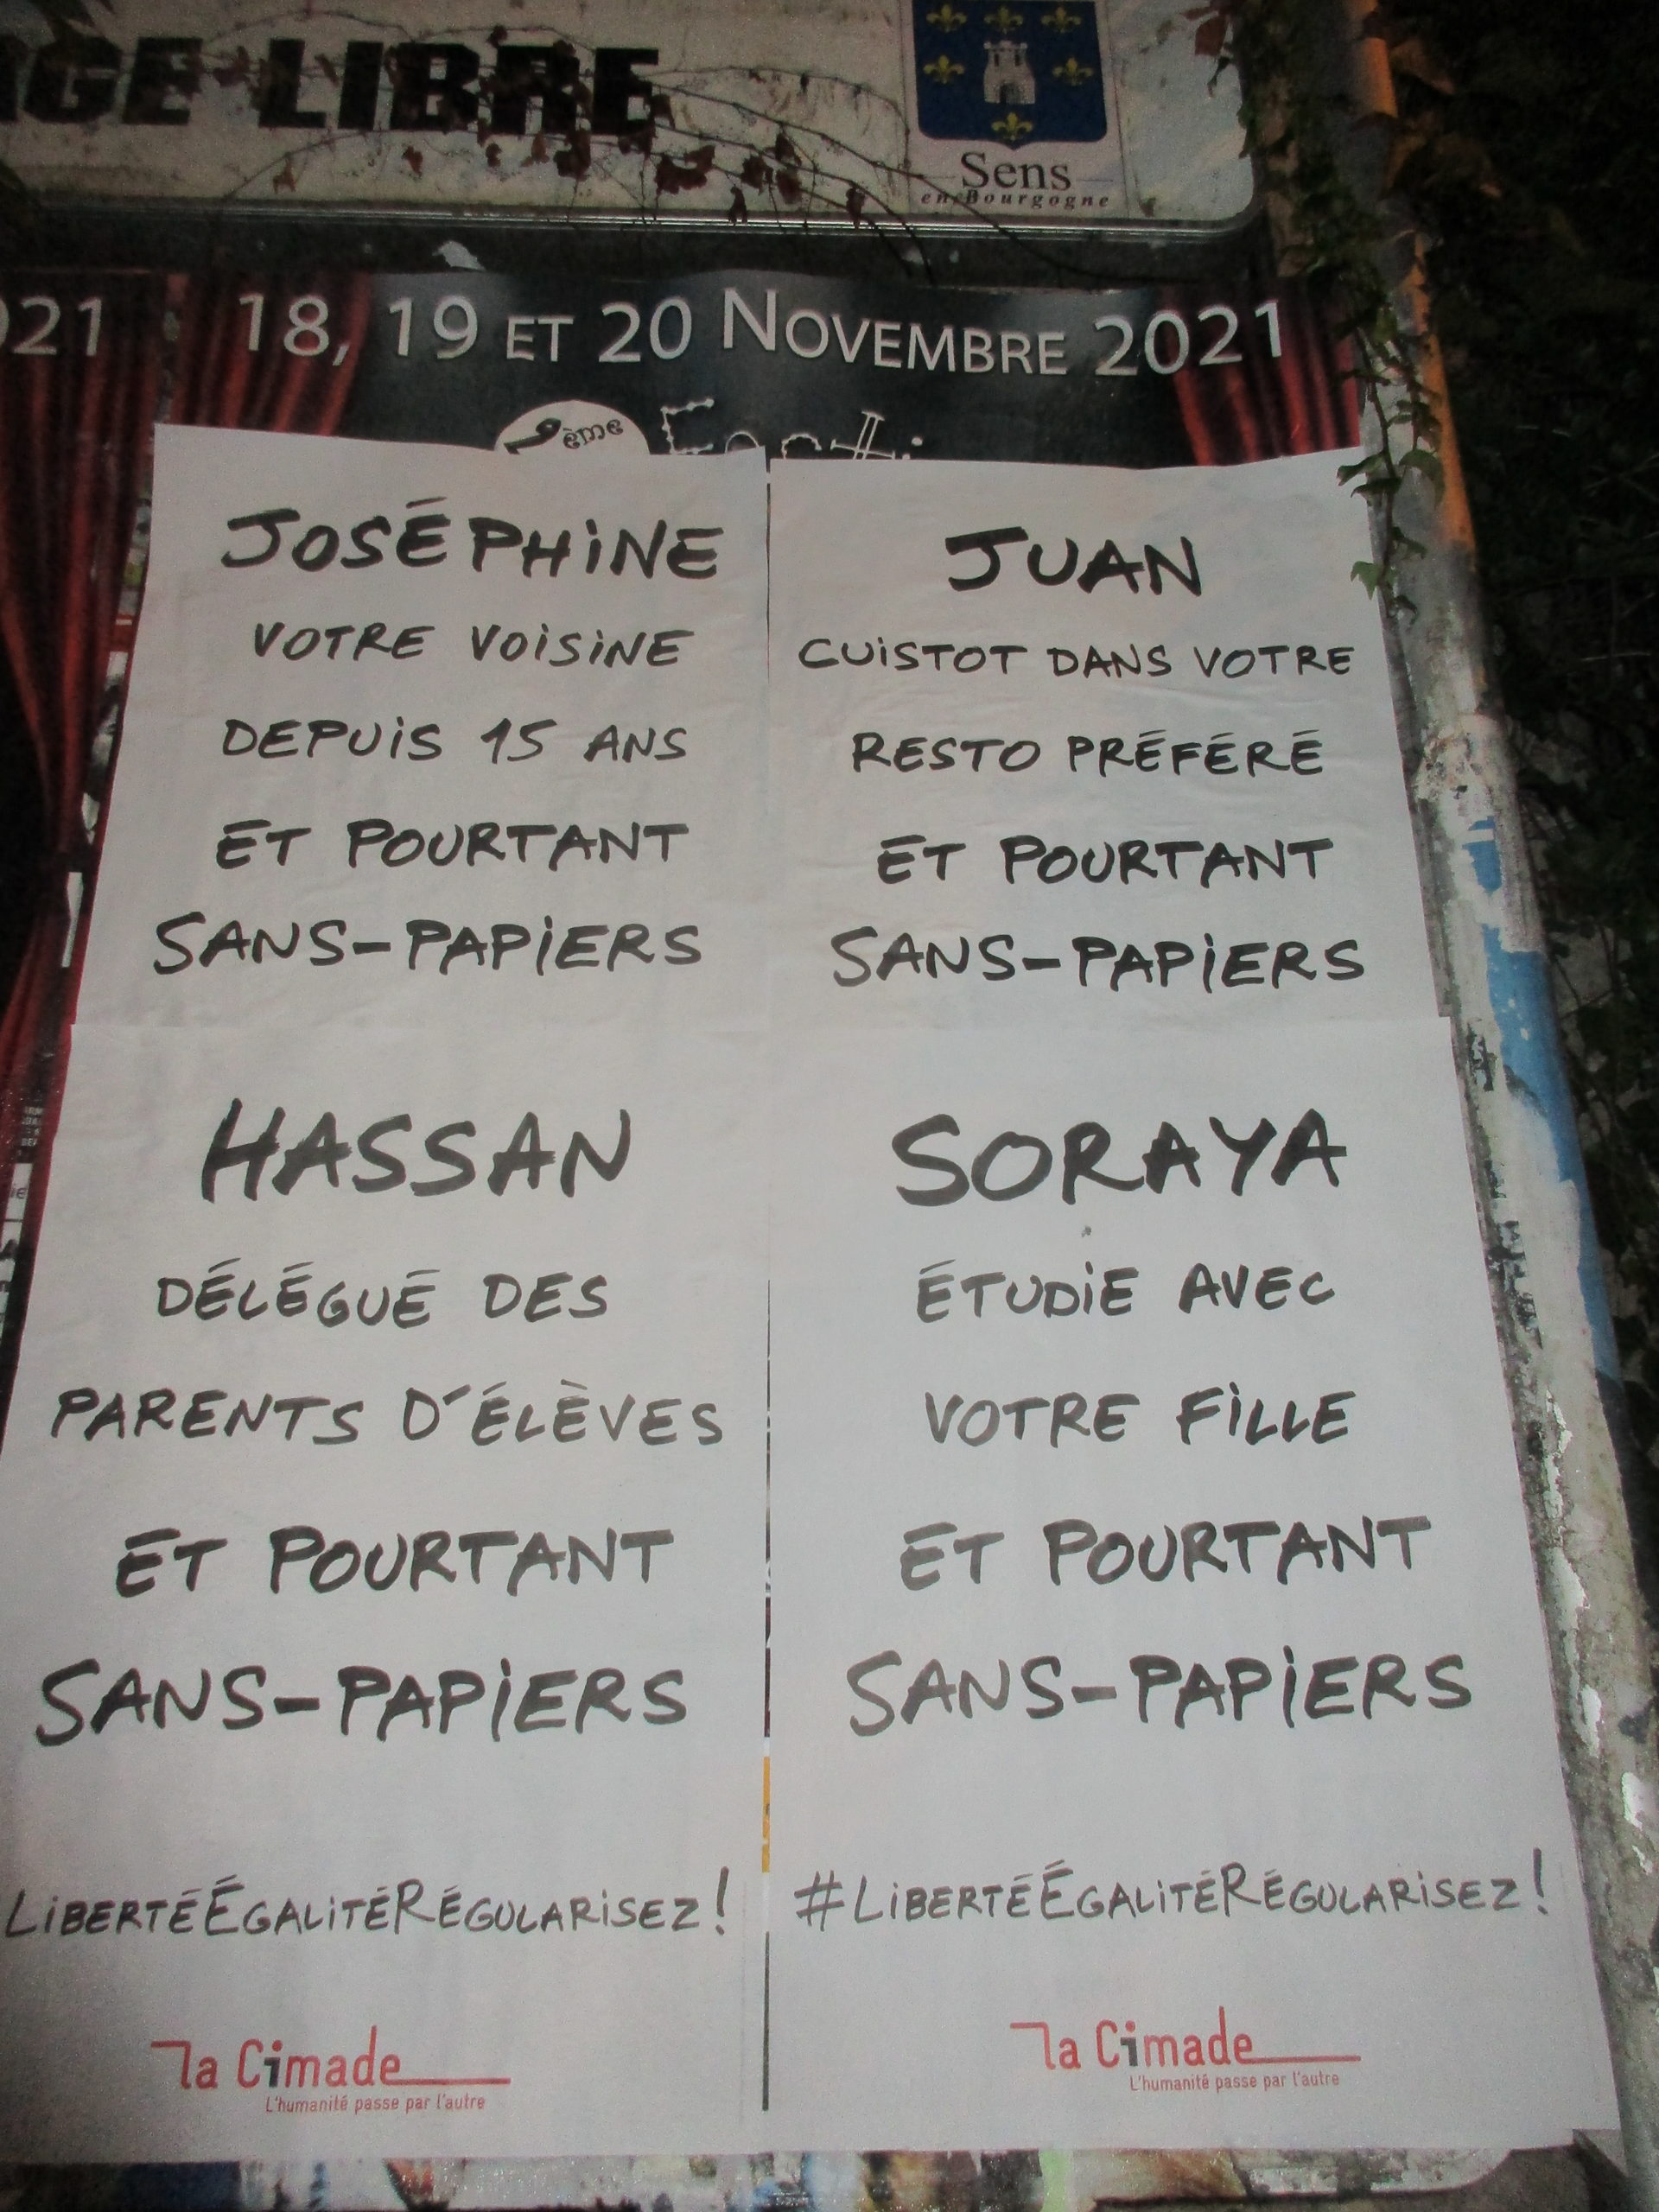 AGE LIBRE
Sens
en Bourgogne
021
18, 19 ET 20 NOVEMBRE 2021
ème
JOSÉPHINE
VOTRE VOISINE
DEPUIS 15 ANS
ET POURTANT
SANS-PAPIERS
JUAN
CUISTOT DANS VOTRE
RESTO PRÉFÉRÉ
ET POURTANT
SANS-PAPIERS
HASSAN
DÉLÉGUÉ DES
PARENTS D'ÉLÈVES
ET POURTANT
SANS-PAPIERS
LIBERTÉÉGALITÉRÉGULARISEZ!
la Cimade
L'humanité passe par l'autre
SORAYA
ÉTUDIE AVEC
VOTRE FILLE
ET POURTANT
SANS-PAPIERS
#LIBERTÉÉGALITÉRÉGULARISEZ!
la Cimade
L'humanité passe par l'autre